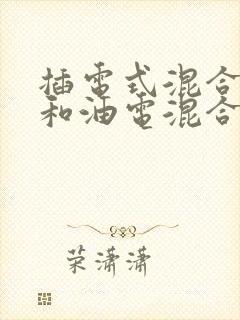 插電式混合
和油電混合
荣潇潇